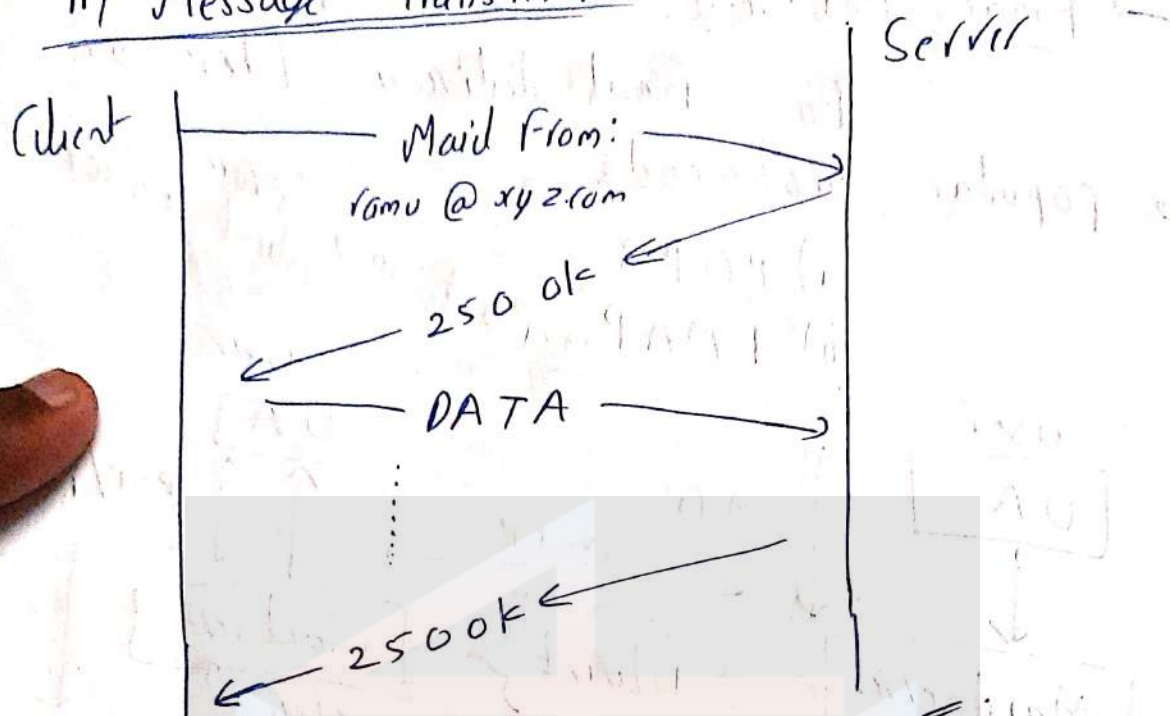 Message
Server
Client
Maid From:
ramu @ xyz.com
250 ok
DATA
250 ok